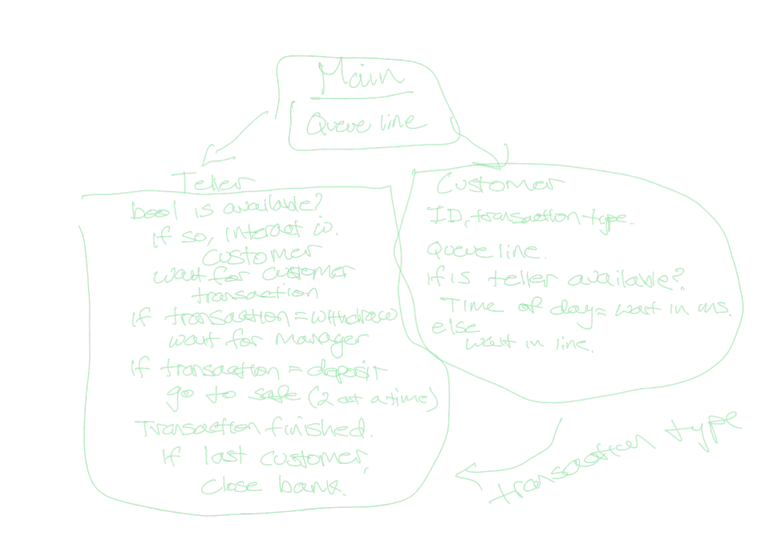 Main
Queue line
Teller
bool is available?
if so, interact w.
customer
wait for customer
transaction
if transaction = withdraw
wait for manager
if transaction = deposit
go to safe (2 at a time)
Transaction finished.
If last customer,
close bank.
Customer
ID, transaction type.
Queue line.
if is teller available?
Time of day = wait in ms.
else
wait in line.
transaction type